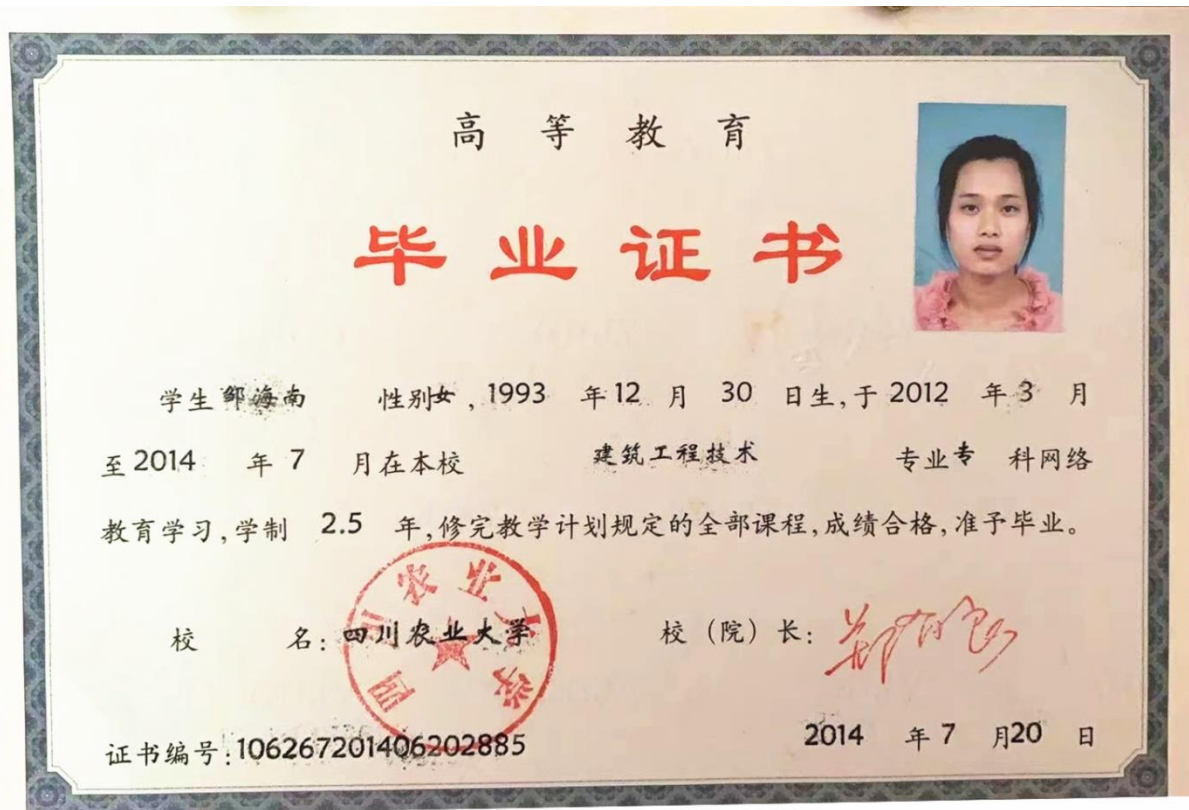 高等教育
毕业证书
学生邹海南 性别女，1993 年12 月 30 日生，于 2012 年 3 月
至 2014 年 7 月在本校 建筑工程技术 专业专 科网络
教育学习，学制 2.5 年，修完教学计划规定的全部课程，成绩合格，准予毕业。
校 名：四川农业大学 校（院）长：郑有良
四川农业大学
证书编号：106267201406202885 2014 年 7 月20 日